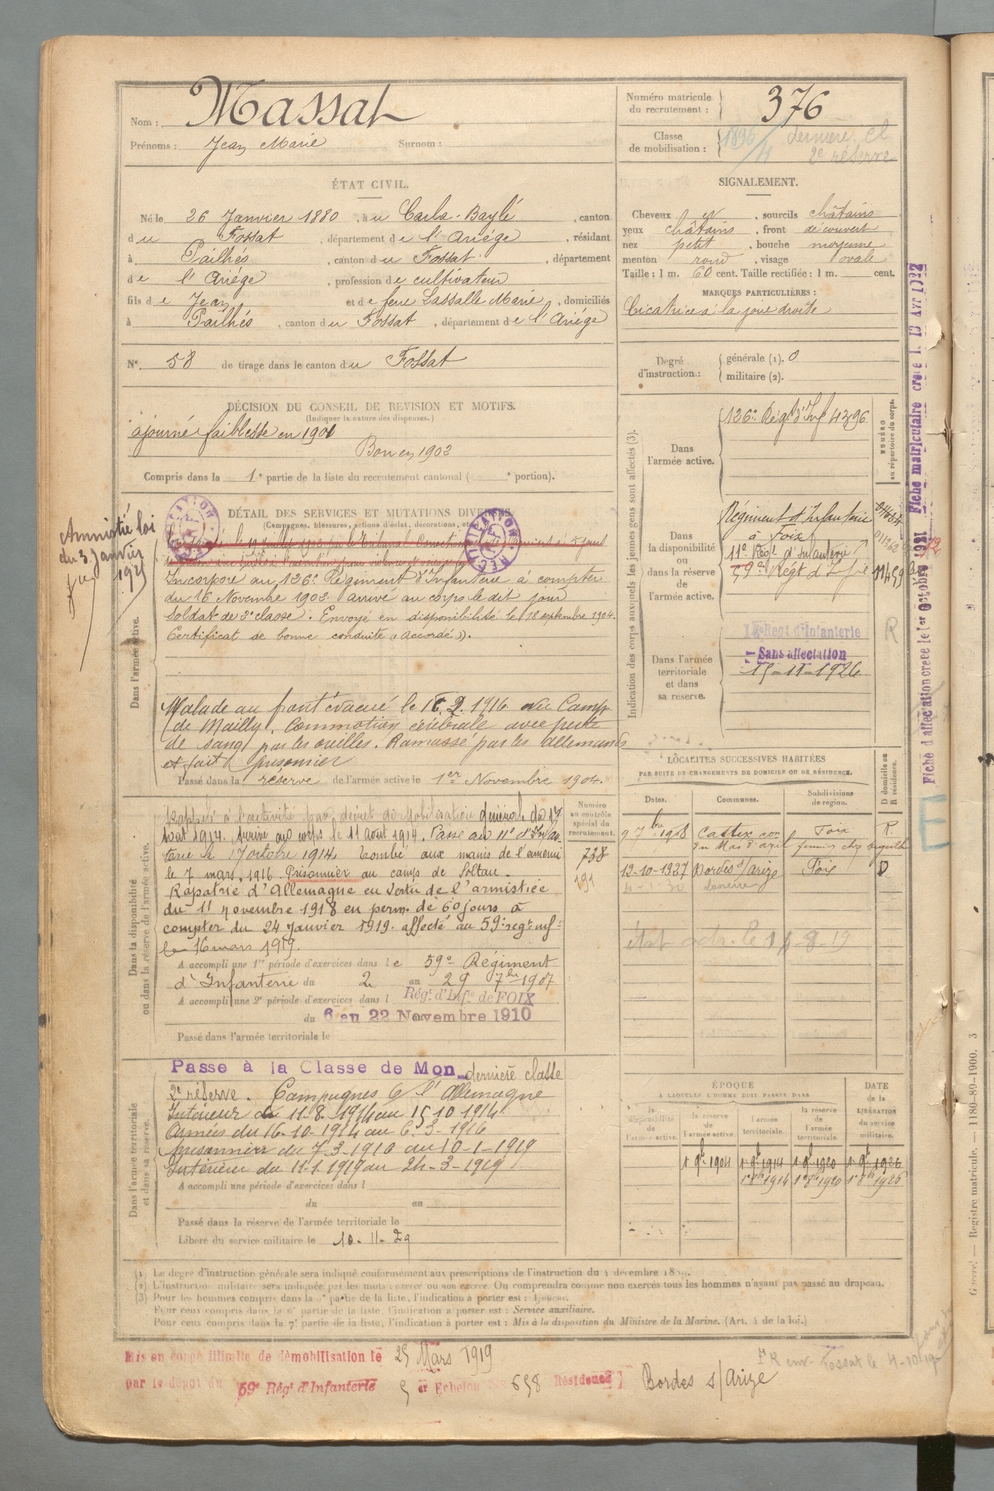 Nom : Massat
Prénoms : Jean Marie Surnom :
Numéro matricule du recrutement : 376
Classe de mobilisation : 1896 dernière cl
2e réserve
ÉTAT CIVIL.
Né le 26 Janvier 1880, à u Carla-Baylé, canton
d u Fossat, département d e l'Ariége, résidant
à Pailhés, canton d u Fossat, département
d e l'Ariége, profession d e cultivateur
fils d e Jean et d e feue Lassalle Marie, domiciliés
à Pailhés, canton d u Fossat, département d e l'Ariége
N° 58 de tirage dans le canton d u Fossat
SIGNALEMENT.
Cheveux et, sourcils châtains
yeux châtains, front découvert
nez petit, bouche moyenne
menton rond, visage ovale
Taille : 1 m. 60 cent. Taille rectifiée : 1 m. cent.
MARQUES PARTICULIÈRES :
Cicatrice à la joue droite
Degré d'instruction : générale (1). 0
militaire (2).
DÉCISION DU CONSEIL DE REVISION ET MOTIFS.
(Indiquer la nature des dispenses.)
ajourné faiblesse en 1901
Bon en 1903
Compris dans la 1e partie de la liste du recrutement cantonal ( e portion).
DÉTAIL DES SERVICES ET MUTATIONS DIVERSES
(Campagnes, blessures, actions d'éclat, décorations, etc.
Amnistié loi
du 3 Janvier
1925
Dans l'armée active.
Incorporé au 136e Régiment d'Infanterie à compter
du 16 Novembre 1903 arrivé au corps le dit jour
Soldat de 2e classe. Envoyé en disponibilité le 18 septembre 1904.
Certificat de bonne conduite « accordé ».
Malade au front évacué le 2.1916 au Camp
de Mailly. Commotion cérébrale avec perte
de sang par les oreilles. Ramassé par les allemands
et fait prisonnier
Passé dans la réserve de l'armée active le 1er Novembre 1904.
Indication des corps auxquels les jeunes gens sont affectés (3).
NUMÉRO au répertoire du corps.
Dans l'armée active.
136e Régt d'Inf 4396
Dans la disponibilité ou dans la réserve de l'armée active.
Régiment d'Infanterie
à Foix
11e Régt d'Infanterie
59e Régt d'Infie
Dans l'armée territoriale et dans sa réserve.
Régt d'Infanterie
Sans affectation
15-11-1926
R
Fiche d'affectation créée le 1er Octobre 1921 Fiche matriculaire créée l. 13 Avr 1922
Dans la disponibilité ou dans la réserve de l'armée active.
Rappelé à l'activité par décret de mobilisation générale du 1er
Août 1914. Arrivé au corps le 11 août 1914. Passé au 11e d'Infan
terie le 17 octobre 1914. Tombé aux mains de l'ennemi
le 7 mars 1916. Prisonnier au camp de Soltau.
Rapatrié d'Allemagne en vertu de l'armistice
du 11 novembre 1918 en perm. de 60 jours à
compter du 24 janvier 1919. affecté au 59e reg inf.
le 16 mars 1919.
A accompli une 1re période d'exercices dans l e 59e Régiment
d'Infanterie du 2 au 29 7bre 1907
A accompli une 2e période d'exercices dans l Régt d'Infie de FOIX
du 6 au 22 Novembre 1910
Passé dans l'armée territoriale le
Numéro au contrôle spécial du recrutement.
738
191
LOCALITÉS SUCCESSIVES HABITÉES
PAR SUITE DE CHANGEMENTS DE DOMICILE OU DE RÉSIDENCE.
Dates. Communes. Subdivisions de région. D domicile ou R résidence.
9 7bre 1908 Castex Foix R
13-10-1927 Bordes s/Arize Foix D
E
Dans l'armée territoriale et dans sa réserve.
Passé à la Classe de Mon dernière classe
2e réserve. Campagnes C l'Allemagne
Intérieur du 11-8-1914 au 15 10-1914
Armées du 16-10-1914 au 6-3-1916
Prisonnier du 7-3-1916 au 10-1-1919
Intérieur du 11-1 1919 au 24-3-1919
A accompli une période d'exercices dans l
du au
Passé dans la réserve de l'armée territoriale le
Libéré du service militaire le 10-11-29
ÉPOQUE
À LAQUELLE L'HOMME DOIT PASSER DANS
DATE de la LIBÉRATION du service militaire.
la disponibilité de l'armée active. la réserve de l'armée active. l'armée territoriale. la réserve de l'armée territoriale.
1 9bre 1904 1 9bre 1914 1 9bre 1920 1 9bre 1926
1914 1920 1926
(1) Le degré d'instruction générale sera indiqué conformément aux prescriptions de l'instruction du 4 décembre 18
(2) L'instruction militaire sera indiquée par les mots : exercé ou non exercé. On comprendra comme non exercés tous les hommes n'ayant pas passé au drapeau.
(3) Pour les hommes compris dans la partie de la liste, l'indication à porter est :
Pour ceux compris dans la partie de la liste, l'indication à porter est : Service auxiliaire.
Pour ceux compris dans la 7e partie de la liste, l'indication à porter est : Mis à la disposition du Ministre de la Marine. (Art. 4 de la loi.)
Mis en congé illimité de démobilisation le 25 Mars 1919
par le dépôt du 59e Régt d'Infanterie Echelon N° 698 Bordes s/Arize
Guerre. — Registre matricule. — 1180-89-1900. 3